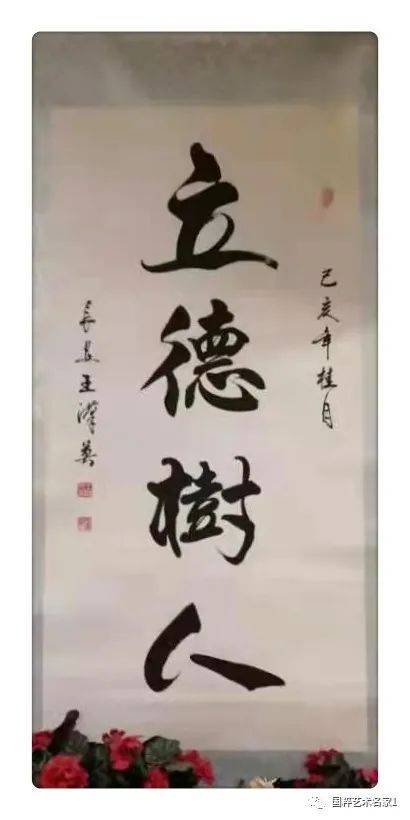 己亥年桂月
立德樹人
長安王漢英
国粹艺术名家1